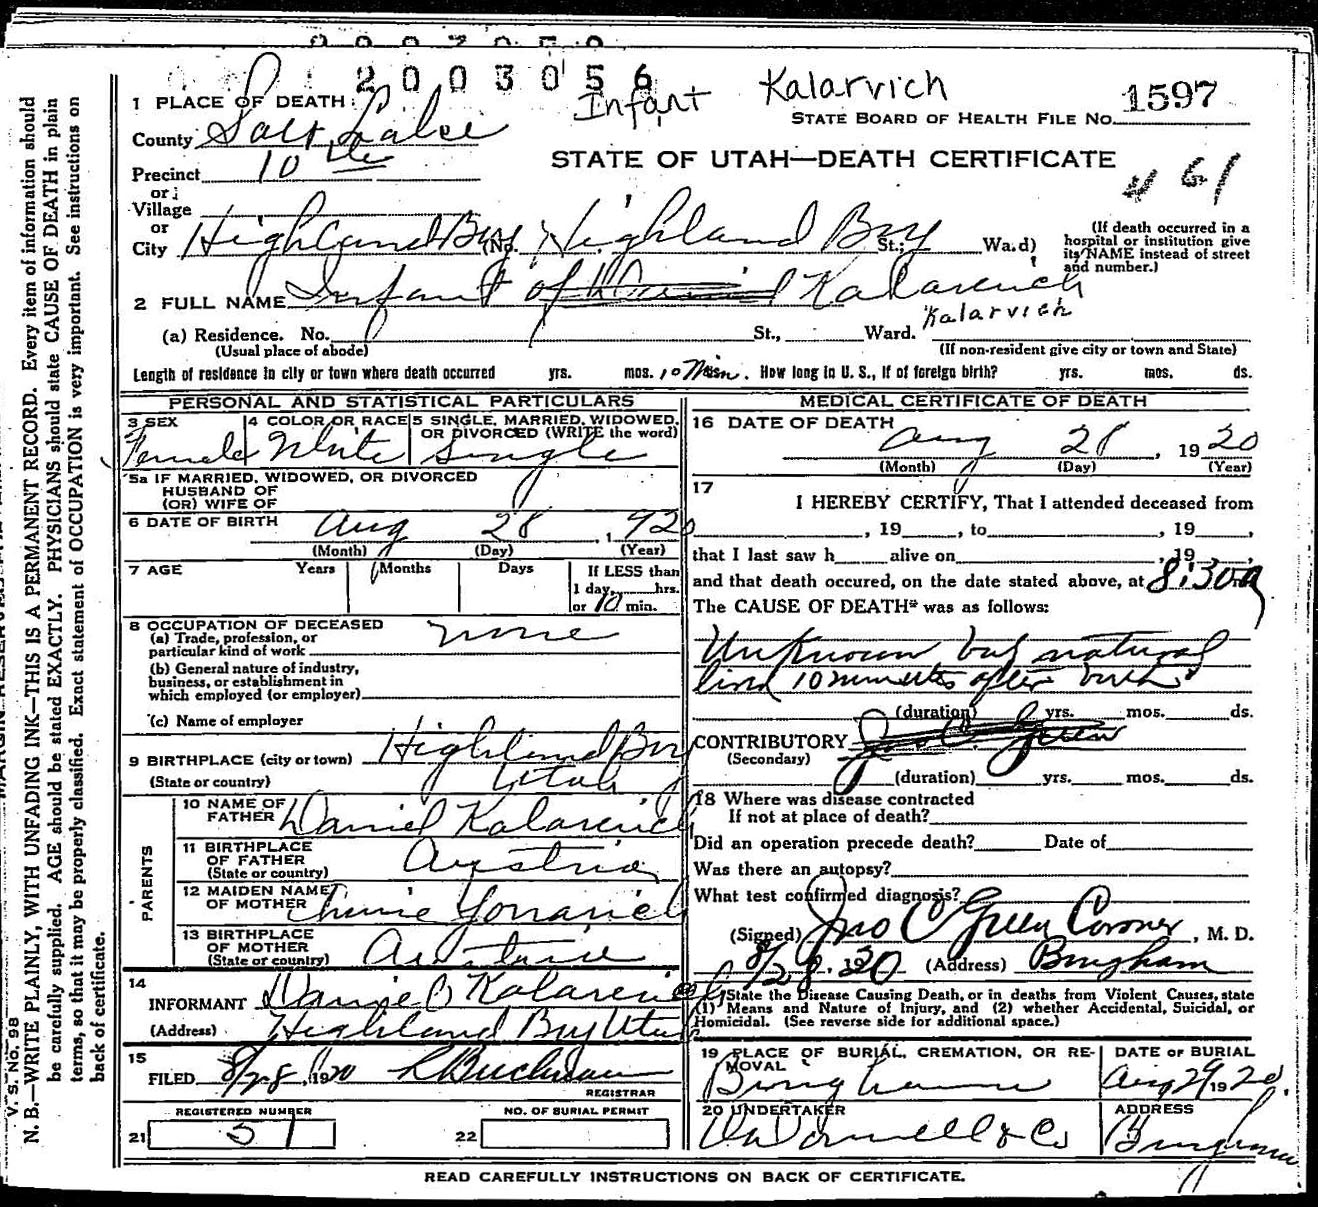 2003056
Infant Kalarvich
1597
STATE BOARD OF HEALTH FILE No.
STATE OF UTAH—DEATH CERTIFICATE
61
1 PLACE OF DEATH:
County Salt Lake
Precinct 10
or
Village
or
City Highland Boy (No. Highland Boy St.; Ward)
(If death occurred in a hospital or institution give its NAME instead of street and number.)
2 FULL NAME Infant of Kalarevich
Kalarvich
(a) Residence. No. St., Ward.
(Usual place of abode) (If non-resident give city or town and State)
Length of residence in city or town where death occurred yrs. mos. 10 Min. How long in U. S., if of foreign birth? yrs. mos. ds.
PERSONAL AND STATISTICAL PARTICULARS
3 SEX Female
4 COLOR OR RACE White
5 SINGLE, MARRIED, WIDOWED, OR DIVORCED (WRITE the word) Single
5a IF MARRIED, WIDOWED, OR DIVORCED
HUSBAND OF
(OR) WIFE OF
6 DATE OF BIRTH Aug 28, 1920
(Month) (Day) (Year)
7 AGE Years Months Days If LESS than
1 day, hrs.
or 10 min.
8 OCCUPATION OF DECEASED
(a) Trade, profession, or
particular kind of work none
(b) General nature of industry,
business, or establishment in
which employed (or employer)
(c) Name of employer
9 BIRTHPLACE (city or town) Highland Boy
(State or country) Utah
PARENTS
10 NAME OF FATHER Daniel Kalarevich
11 BIRTHPLACE OF FATHER (State or country) Austria
12 MAIDEN NAME OF MOTHER
13 BIRTHPLACE OF MOTHER (State or country)
14
INFORMANT Daniel Kalarevich
(Address) Highland Boy Utah
15
FILED 8/28, 1920
REGISTRAR
REGISTERED NUMBER
21 51
NO. OF BURIAL PERMIT
22
MEDICAL CERTIFICATE OF DEATH
16 DATE OF DEATH
Aug 28, 1920
(Month) (Day) (Year)
17
I HEREBY CERTIFY, That I attended deceased from
, 19 , to , 19 ,
that I last saw h alive on , 19
and that death occured, on the date stated above, at 8:30 a
The CAUSE OF DEATH* was as follows:
Unknown but natural
lived 10 minutes after birth
(duration) yrs. mos. ds.
CONTRIBUTORY Jno C. Green
(Secondary)
(duration) yrs. mos. ds.
18 Where was disease contracted
If not at place of death?
Did an operation precede death? Date of
Was there an autopsy?
What test confirmed diagnosis?
(Signed) Jno C Green Coroner, M. D.
8/28, 1920 (Address) Bingham
*State the Disease Causing Death, or in deaths from Violent Causes, state
(1) Means and Nature of Injury, and (2) whether Accidental, Suicidal, or
Homicidal. (See reverse side for additional space.)
19 PLACE OF BURIAL, CREMATION, OR REMOVAL Bingham
DATE OF BURIAL
Aug 29 1920.
20 UNDERTAKER
& Co
ADDRESS
Bingham
READ CAREFULLY INSTRUCTIONS ON BACK OF CERTIFICATE.
V. S. No. 98
N. B.—WRITE PLAINLY, WITH UNFADING INK—THIS IS A PERMANENT RECORD. Every item of information should
be carefully supplied. AGE should be stated EXACTLY. PHYSICIANS should state CAUSE OF DEATH in plain
terms, so that it may be properly classified. Exact statement of OCCUPATION is very important. See instructions on
back of certificate.